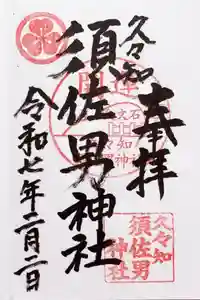 奉拝
久々知
須佐男神社
令和七年二月二日
開運
久々知
須佐男
神社